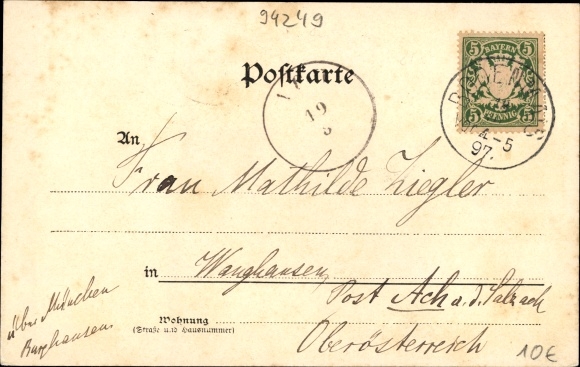 94249
Postkarte
5 BAYERN 5
5 PFENNIG 5
4-5
97.
19
8
An
Frau Mathilde Ziegler
in Wanghausen,
Post Ach a. d. Salzach
Wohnung
(Straße und Hausnummer)
Oberösterreich
über München
Burghausen
10€